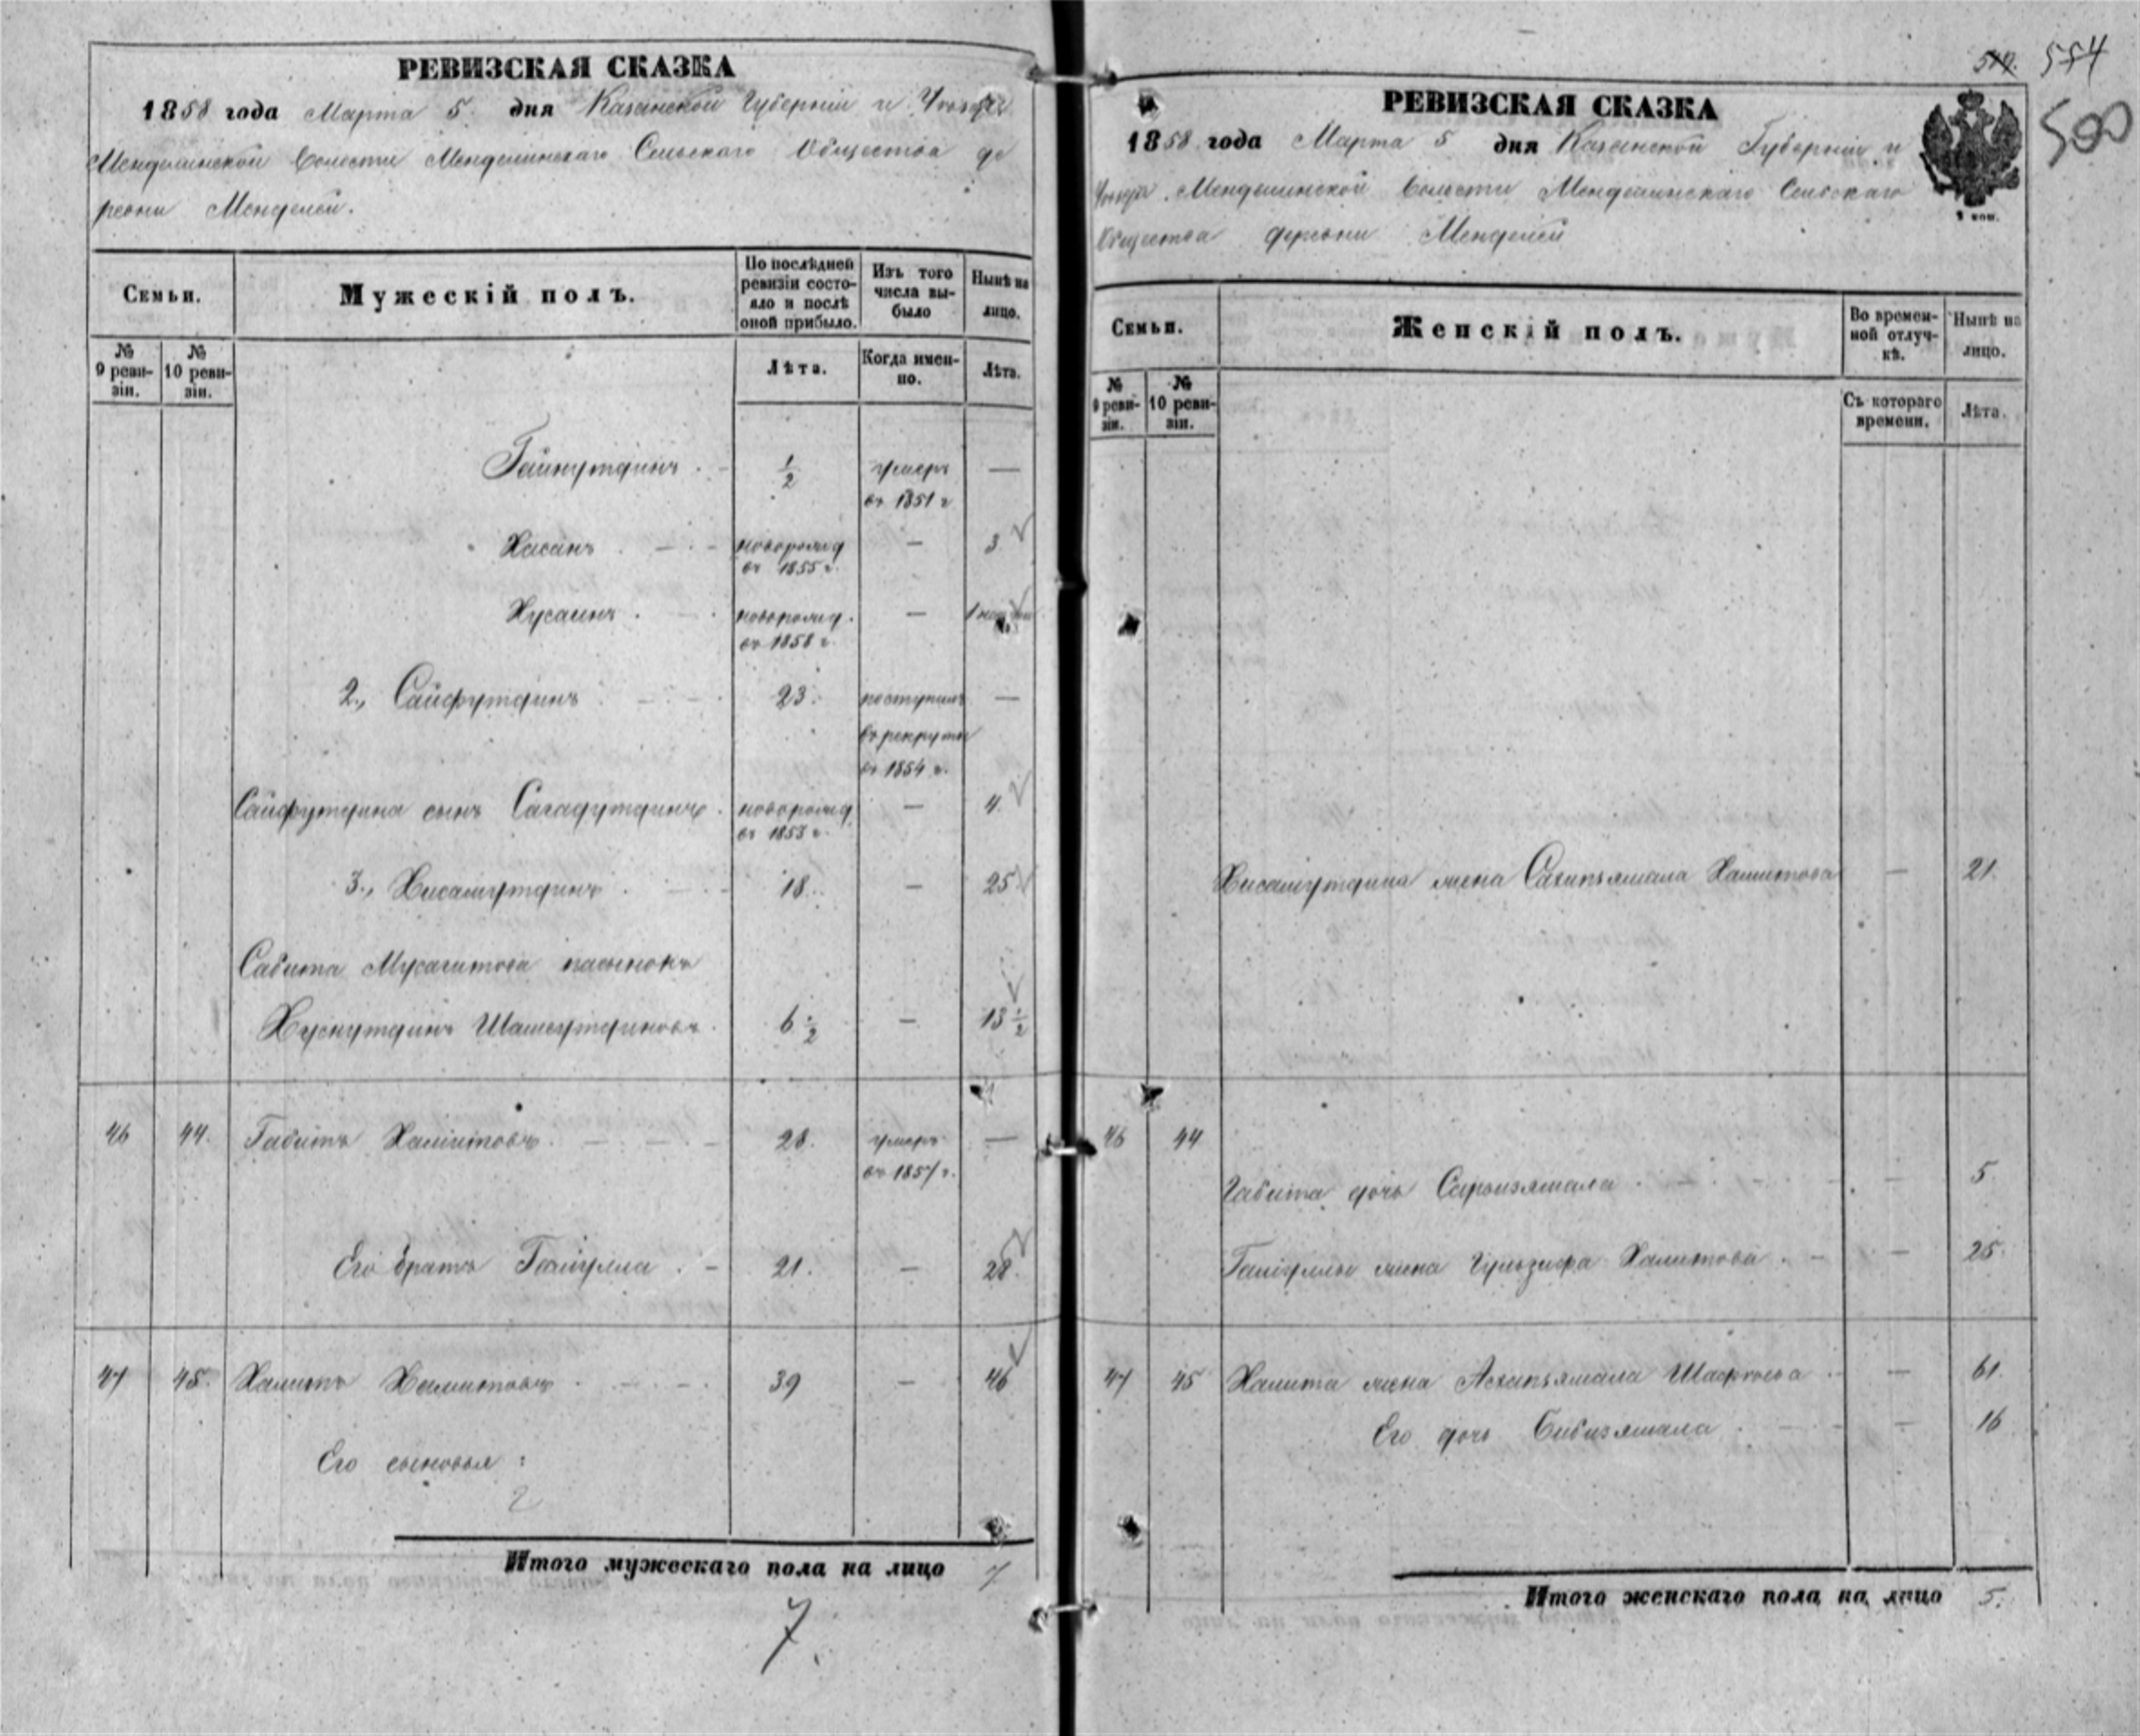 РЕВИЗСКАЯ СКАЗКА
1858 года Марта 5. дня Казанской Губернiи и Уѣзда
Менделинской Волости Менделинскаго Сельскаго Общества де
ревни Менделей.
Семьи.
Мужескій полъ.
По послѣдней ревизіи состояло и послѣ оной прибыло.
Изъ того числа выбыло
Нынѣ на лицо.
№ 9 ревизіи.
№ 10 ревизіи.
Лѣта.
Когда именно.
Лѣта.
Гайнутдинъ . - 1/2 умеръ —
въ 1851 г
Хасанъ . - - новорожд — 3
въ 1855 г.
Хусаинъ . - новорожд. — 1
въ 1858 г.
2., Сайфутдинъ 23. поступилъ —
въ рекруты
въ 1854 г.
Сайфутдина сынъ Сагадутдинъ . новорожд. — 4.
въ 1853 г.
3., Хисамутдинъ . 18. — 25
Сабита Мусагитова пасынокъ
Хуснутдинъ Шамсутдиновъ . 6 1/2 — 13 1/2
46 44. Габитъ Халитовъ . — 28. умеръ —
въ 1857 г.
Его братъ Галiулла . - 21. — 28.
47 45. Халитъ Халитовъ . 39 — 46
Его сыновья :
2
Итого мужескаго пола на лицо 7
7.
519. 554
500
РЕВИЗСКАЯ СКАЗКА
1858 года Марта 5 дня Казанской Губернiи и
Уѣзда Менделинской Волости Менделинскаго Сельскаго
Общества деревни Менделей
1 коп.
Семьи.
Женскій полъ.
Во временной отлучкѣ.
Нынѣ на лицо.
№ 9 ревизіи.
№ 10 ревизіи.
Съ котораго времени.
Лѣта.
Хисамутдина жена Сахипъямала Халитова — 21.
46 44
Габита дочь — 5.
Галiуллы жена Гульзифа Халитова . — 25.
47 45 Халита жена Асхапъямала — 61.
Его дочь Бибизямала . — 16
Итого женскаго пола на лицо 5.